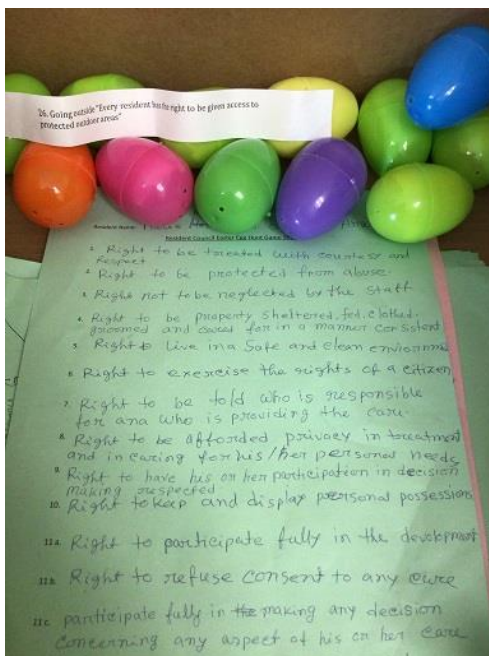 26. Going outside "Every resident has the right to be given access to
protected outdoor areas"
Resident Name:
Resident Council Easter Egg Hunt Game
1. Right to be treated with courtesy and
Respect
2. Right to be protected from abuse.
3. Right not to be neglected by the staff
4. Right to be property sheltered, fed, clothed,
groomed and cared for in a manner consistent
5. Right to Live in a Safe and clean environme
6. Right to exercise the rights of a citizen
7. Right to be told who is responsible
for ana who is providing the care.
8. Right to be afforded privacy in treatment
and in caring for his/her personal needs
9. Right to have his or her participation in decision
making respected
10. Right to keep and display personal possessions
11a. Right to participate fully in the development
11b. Right to refuse consent to any cure
11c. participate fully in the making any decision
Concerning any aspect of his or her care